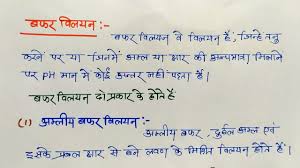 बफर विलयन :-
बफर विलयन वे विलयन हैं, जिन्हें तनु
करने पर या जिनमें अम्ल या क्षार की अल्पमात्रा मिलाने
पर PH मान में कोई अन्तर नहीं पड़ता है।
बफर विलयन दो प्रकार के होते हैं
(1) अम्लीय बफर विलयन :-
अम्लीय बफर, दुर्बल अम्ल एवं
इसके प्रबल क्षार से बने लवण के मिश्रित विलयन होते हैं।